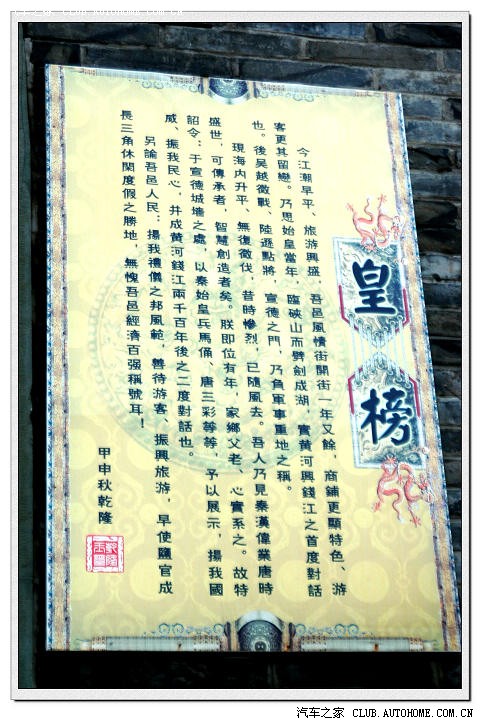 汽车之家 CLUB.AUTOHOME.COM.CN
皇榜
今江潮早平、旅游興盛，吾邑風情街開街一年又餘，商鋪更顯特色、游
客更其留戀。乃思始皇當年，臨硤山而劈劍成湖，實黄河與錢江之首度對話
也。後吴越微戰、陸遜點將，宣德之門，乃負軍事重地之稱。
現海内升平、無復徵伐，昔時慘烈，已隨風去。吾人乃見秦漢偉業唐時
盛世，可傳承者，智慧創造者矣。朕即位有年，家鄉父老、心實系之。故特
詔令：于宣德城墻之處，以秦始皇兵馬俑、唐三彩等等，予以展示，揚我國
威、振我民心，并成黄河錢江兩千百年後之二度對話也。
另諭吾邑人民：揚我禮儀之邦風範，善待游客、振興旅游，早使鹽官成
長三角休閑度假之勝地，無愧吾邑經濟百强稱號耳！
甲申秋乾隆
汽车之家 CLUB.AUTOHOME.COM.CN